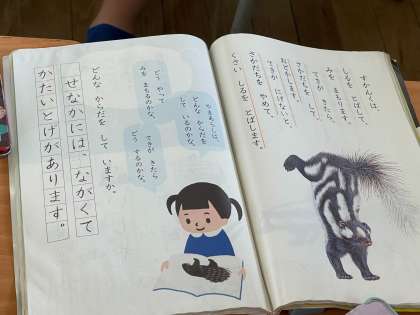 すかんくは、
しるを とばして、
みを まもります。
てきが きたら、
さかだちを して、
おどかします。
てきが にげないと、
さかだちを やめて、
くさい しるを とばします。
やまあらしは、
どんな からだを
して いるのかな。
てきが きたら
どう するのかな。
どう やって
みを まもるのかな。
どんな からだを して いますか。
せなかには、ながくて
かたい とげが あります。